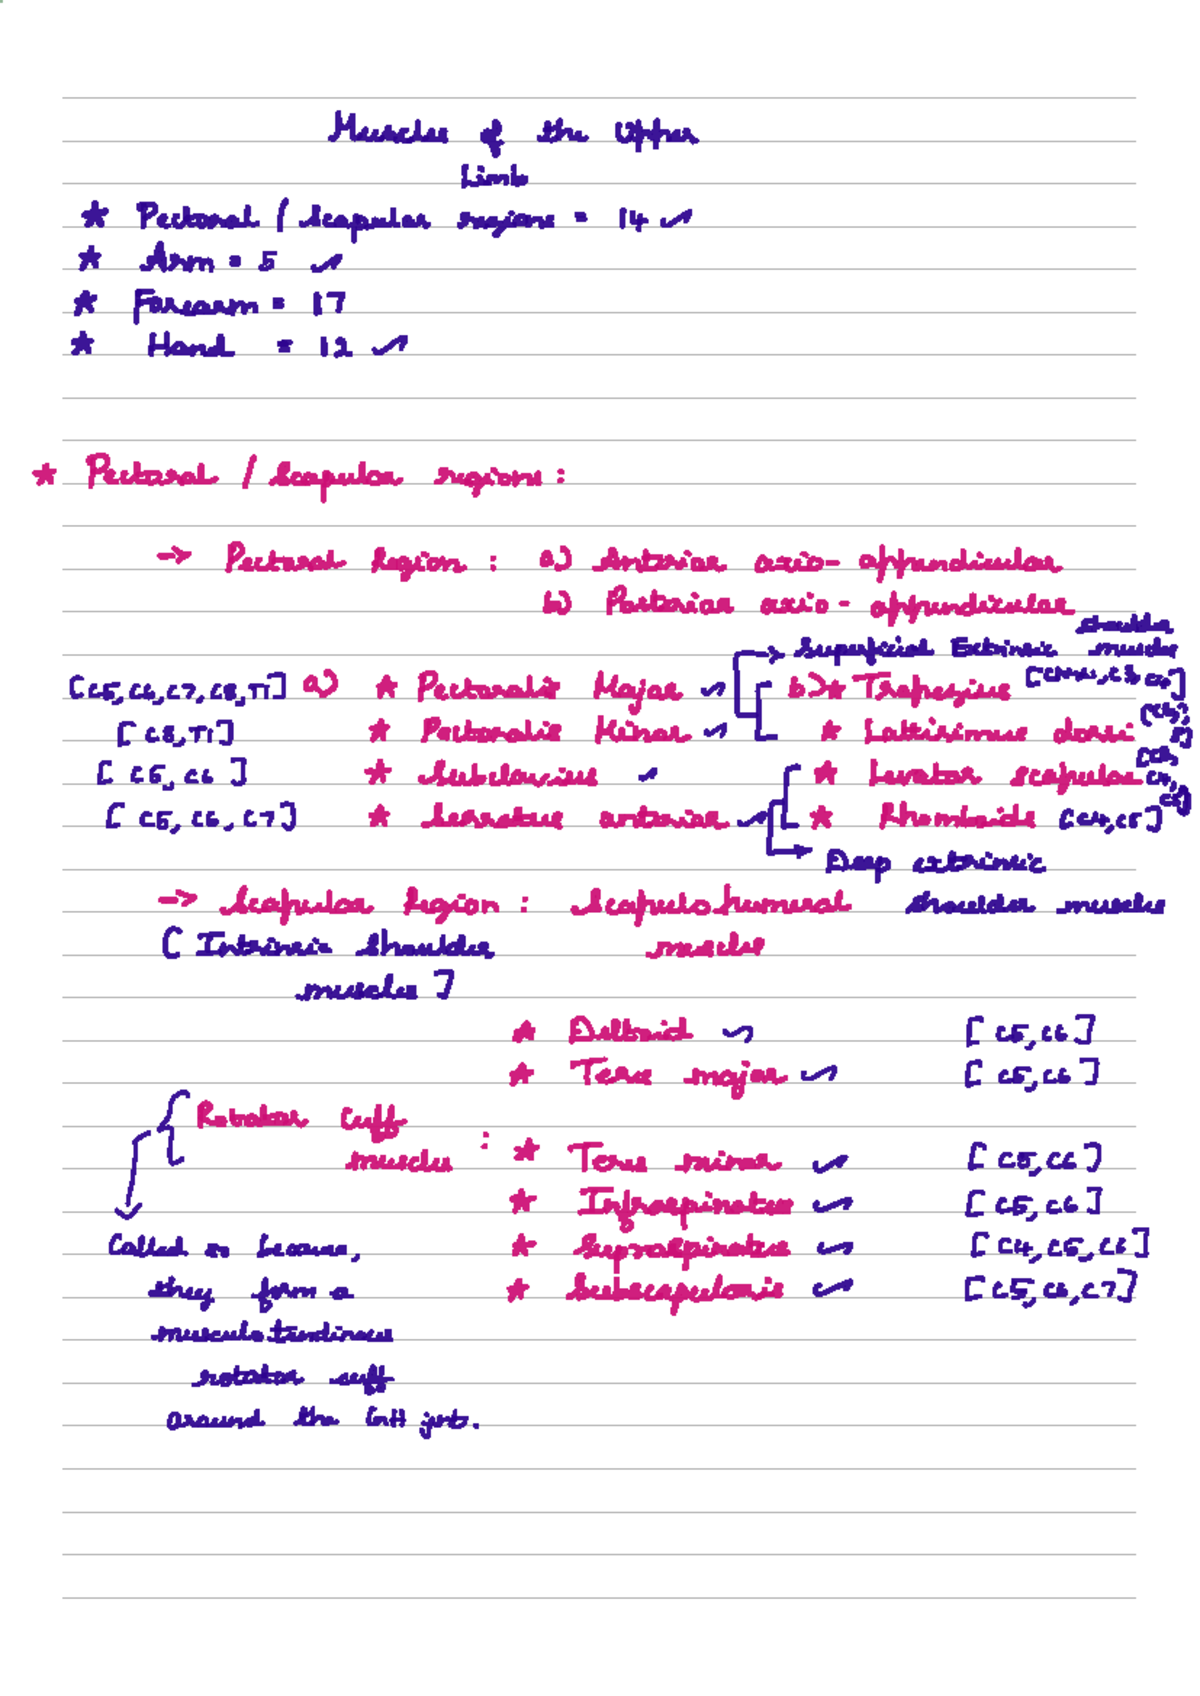 Muscles of the Upper
Limb
* Pectoral / Scapular regions = 14 ✓
* Arm = 5 ✓
* Forearm = 17
* Hand = 12 ✓
* Pectoral / Scapular regions :
-> Pectoral Region : a) Anterior axio-appendicular
b) Posterior axio-appendicular
-> Superficial Extrinsic shoulder muscles
[C5, C6, C7, C8, T1] a) * Pectoralis Major ✓ b) * Trapezius
[C8, T1] * Pectoralis Minor ✓ * Lattisimus dorsi
[C5, C6] * Subclavius ✓ * Levator scapulae
[C5, C6, C7] * Serratus anterior ✓ * Rhomboids [C4, C5]
-> Deep extrinsic
shoulder muscles
-> Scapular Region : Scapulohumeral
muscles
[Intrinsic Shoulder
muscles]
* Deltoid ✓ [C5, C6]
* Teres major ✓ [C5, C6]
Rotator Cuff
muscles : * Teres minor ✓ [C5, C6]
* Infraspinatus ✓ [C5, C6]
* Supraspinatus ✓ [C4, C5, C6]
* Subscapularis ✓ [C5, C6, C7]
Called so because,
they form a
musculotendinous
rotator cuff
around the GH jnt.